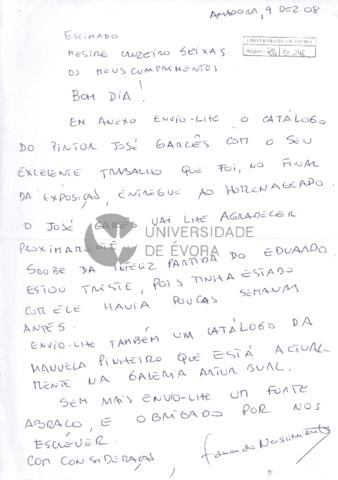 AMADORA, 9 DEZ 08
ESTIMADO
MESTRE CRUZEIRO SEIXAS
OS MEUS CUMPRIMENTOS
UNIVERSIDADE DE ÉVORA
BOM DIA!
EM ANEXO ENVIO-LHE O CATÁLOGO
DO PINTOR JOSÉ GARCÊS COM O SEU
EXCELENTE TRABALHO QUE FOI, NO FINAL
DA EXPOSIÇÃO, ENTREGUE AO HOMENAGEADO.
O JOSÉ GARCÊS VAI LHE AGRADECER
PROXIMAMENTE.
UNIVERSIDADE
DE ÉVORA
SOUBE DA INFELIZ PARTIDA DO EDUARDO.
ESTOU TRISTE, POIS TINHA ESTADO
COM ELE HAVIA POUCAS SEMANAS
ANTES.
ENVIO-LHE TAMBÉM UM CATÁLOGO DA
MANUELA PINHEIRO QUE ESTÁ ACTUAL-
MENTE NA GALERIA ARTUR BUAL.
SEM MAIS ENVIO-LHE UM FORTE
ABRAÇO, E OBRIGADO POR NOS
ESCREVER.
COM CONSIDERAÇÃO,
Nascimento